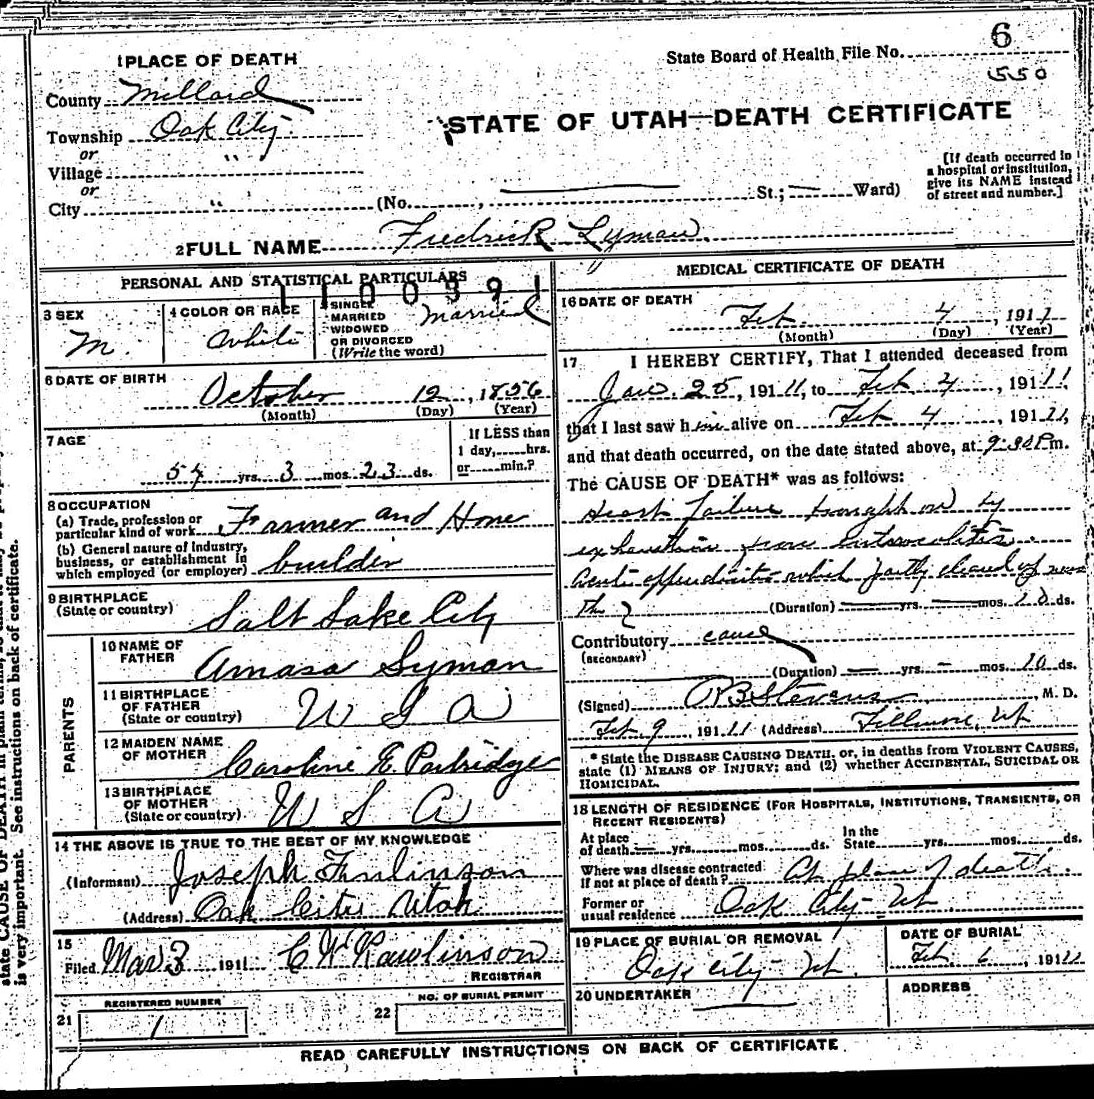 6
State Board of Health File No.
550
1 PLACE OF DEATH
County Millard
Township Oak City
or
Village "
or
City "
STATE OF UTAH—DEATH CERTIFICATE
(No. , St.; Ward)
[If death occurred in
a hospital or institution,
give its NAME instead
of street and number.]
2 FULL NAME Fredrick Lyman
PERSONAL AND STATISTICAL PARTICULARS
1100391
3 SEX
M.
4 COLOR OR RACE
White
SINGLE
MARRIED
WIDOWED
OR DIVORCED
(Write the word)
Married
6 DATE OF BIRTH
October 12, 1856
(Month) (Day) (Year)
7 AGE
54 yrs. 3 mos. 23 ds.
If LESS than
1 day, hrs.
or min.?
8 OCCUPATION
(a) Trade, profession or
particular kind of work Farmer and Home
(b) General nature of industry,
business, or establishment in
which employed (or employer) builder
9 BIRTHPLACE
(State or country) Salt Lake City
PARENTS
10 NAME OF
FATHER Amasa Lyman
11 BIRTHPLACE
OF FATHER
(State or country) U S A
12 MAIDEN NAME
OF MOTHER Caroline E. Partridge
13 BIRTHPLACE
OF MOTHER
(State or country) U S A
14 THE ABOVE IS TRUE TO THE BEST OF MY KNOWLEDGE
(Informant) Joseph Finlinson
(Address) Oak City Utah
15
Filed Mar 3 1911 C W Rawlinson
REGISTRAR
REGISTERED NUMBER
21 1
NO. OF BURIAL PERMIT
22
MEDICAL CERTIFICATE OF DEATH
16 DATE OF DEATH
Feb 4, 1911
(Month) (Day) (Year)
17 I HEREBY CERTIFY, That I attended deceased from
Jan 25, 191 11, to Feb 4, 191 11,
that I last saw h im alive on Feb 4, 191 11,
and that death occurred, on the date stated above, at 9:30 P m.
The CAUSE OF DEATH* was as follows:
Heart failure brought on by
exhaustion from
acute appendicitis which partly cleared up
(Duration) yrs. mos. 10 ds.
Contributory cause
(SECONDARY)
(Duration) yrs. mos. 10 ds.
(Signed) Stevens, M. D.
Feb 9, 191 11 (Address) Fillmore, Ut
* State the DISEASE CAUSING DEATH, or, in deaths from VIOLENT CAUSES,
state (1) MEANS OF INJURY; and (2) whether ACCIDENTAL, SUICIDAL OR
HOMICIDAL.
18 LENGTH OF RESIDENCE (FOR HOSPITALS, INSTITUTIONS, TRANSIENTS, OR
RECENT RESIDENTS)
At place
of death yrs. mos. ds.
In the
State yrs. mos. ds.
Where was disease contracted
if not at place of death? At place of death.
Former or
usual residence Oak City Ut
19 PLACE OF BURIAL OR REMOVAL
Oak City Ut.
DATE OF BURIAL
Feb 6, 191 11
20 UNDERTAKER
ADDRESS
READ CAREFULLY INSTRUCTIONS ON BACK OF CERTIFICATE
state CAUSE OF DEATH in plain terms,
is very important. See instructions on back of certificate.